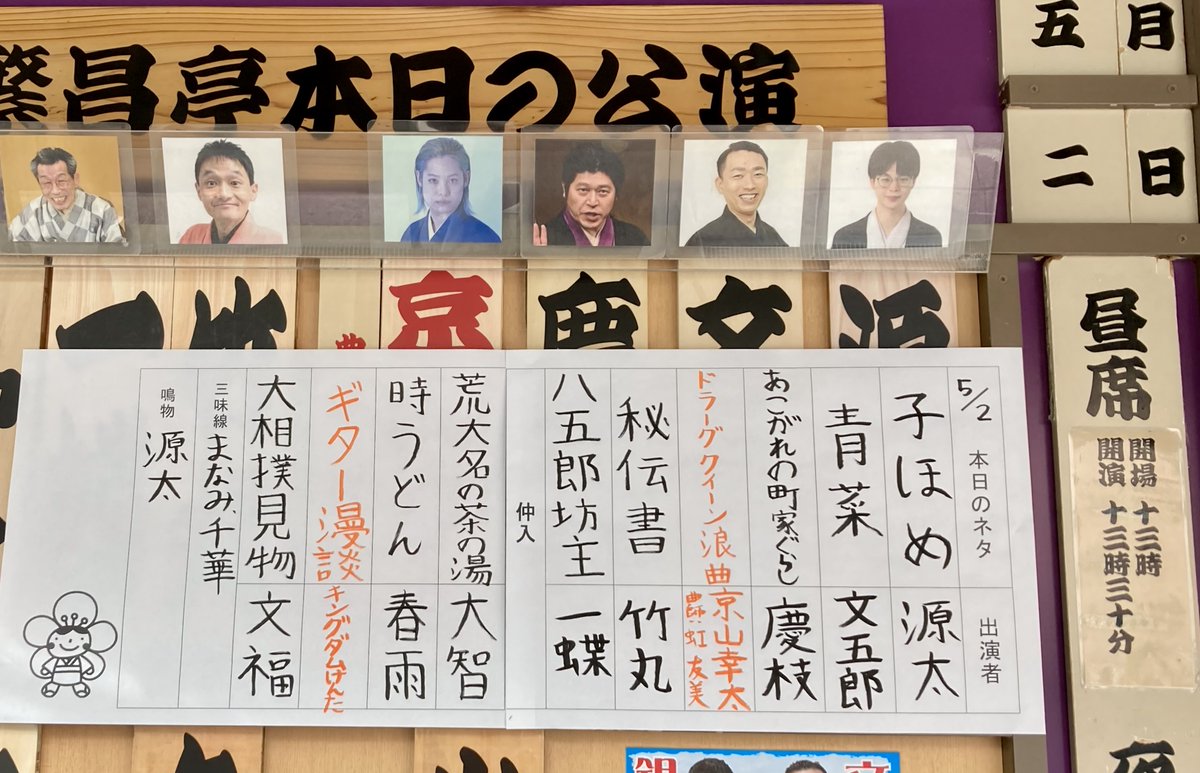 繁昌亭本日の公演
五月
二日
昼席
開場 十三時
開演 十三時三十分
京
慶
文
源
竹
5/2 本日のネタ 出演者
子ほめ 源太
青菜 文五郎
あこがれの町家ぐらし 慶枝
ドラーグクイーン浪曲 京山幸太
曲師・虹友美
秘伝書 竹丸
八五郎坊主 一蝶
仲入
荒大名の茶の湯 大智
時うどん 春雨
ギター漫談 キングダムけんた
大相撲見物 文福
三味線 まなみ、千華
鳴物 源太